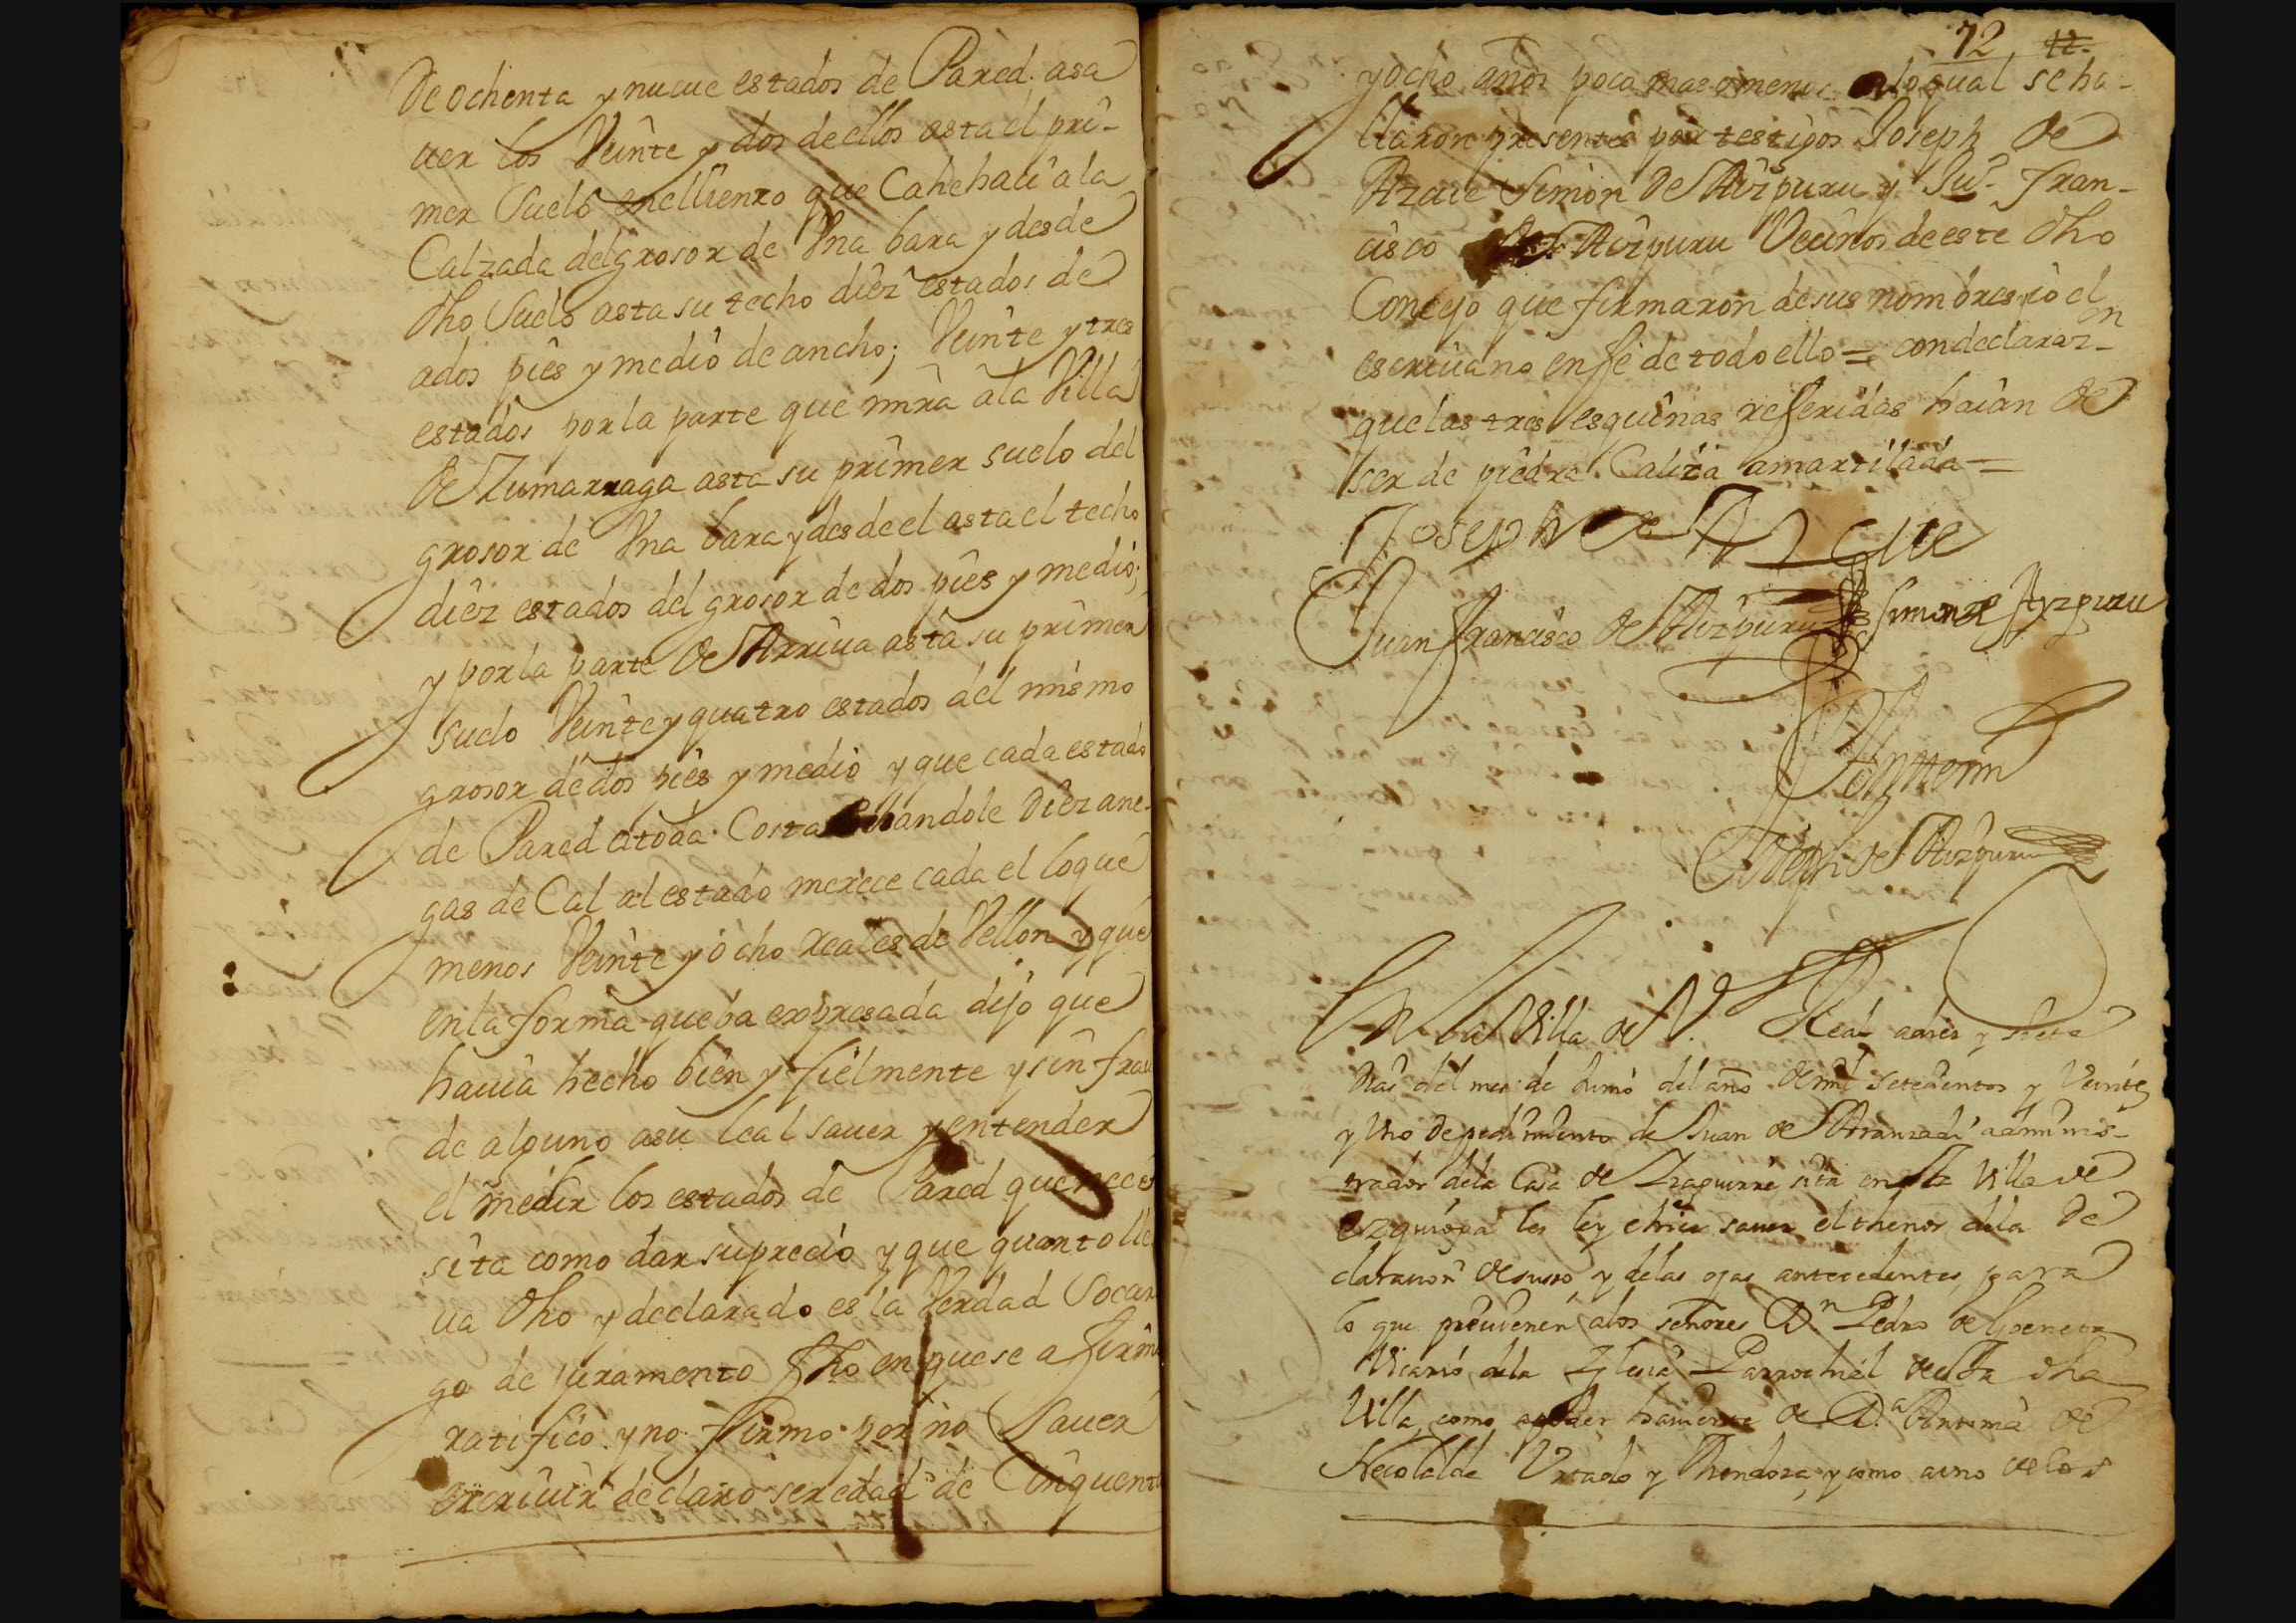 de ochenta y nueue estados de Pared, asa
uer los Veinte y dos de ellos asta el pri-
mer suelo en el lienzo que Cahe haci a la
Calzada del grosor de Vna bara y desde
dho suelo asta su techo diez estados de
ados pies y medio de ancho; Veinte y tres
estados por la parte que mira ala Villa
de Zumarraga asta su primer suelo del
grosor de Vna bara y desde el asta el techo
diez estados del grosor de dos pies y medio;
y por la parte de Arriua asta su primer
suelo Veinte y quatro estados del mismo
grosor de dos pies y medio y que cada estado
de Pared a toda Costa echandole Diez ane-
gas de Cal al estado merece cada el loque
menos Veinte y ocho reales de Vellon y que
en la forma que ba expresada dijo que
hauia hecho bien y fielmente y sin frau
de alguno asu leal sauer y entender
el medir los estados de Pared que nece
sita como dar su precio y que quanto lle
ua dho y declarado es la Verdad Socar
go de juramento fho en que se afirmo
ratifico y no firmo por no Sauer
escriuir declaro ser edad de Cinquenta
72 12.
y ocho años poco mas o menos alo qual se ha-
llaron presentes por testigos Joseph de
Azcue Simon de Aizpuru y Juº Fran-
cisco de Aizpuru Vecinos de este dho
Concejo que firmaron de sus nombres, io el
escriuano en fe de todo ello = con declarazon
que las tres esquinas referidas haian de
ser de piedra Caliza amartilada =
Joseph de Azcue
Juan Francisco de Aizpuru Simon de Ayzpuru
Ante mi
Joseph de Aizpuru
En la Villa de V. Real a diez y siete
dias del mes de Junio del año de mil setecientos y Veinte
y Vno de pedimiento de Juan de Arranzadi adminis-
trador dela Casa de Izaguirre sita en la Villa de
ezquioga les ley e hice sauer el thenor dela De
claracion desusso, y delas ojas antecedentes, para
lo que preuienen alos señores Dn Pedro de Goenetx
Vicario dela Iglesia Parrochial de esta dha
Villa como apoder hauiente de D.ª Antonia de
Necolalde Vrtado y Mendoza, y como a uno de los